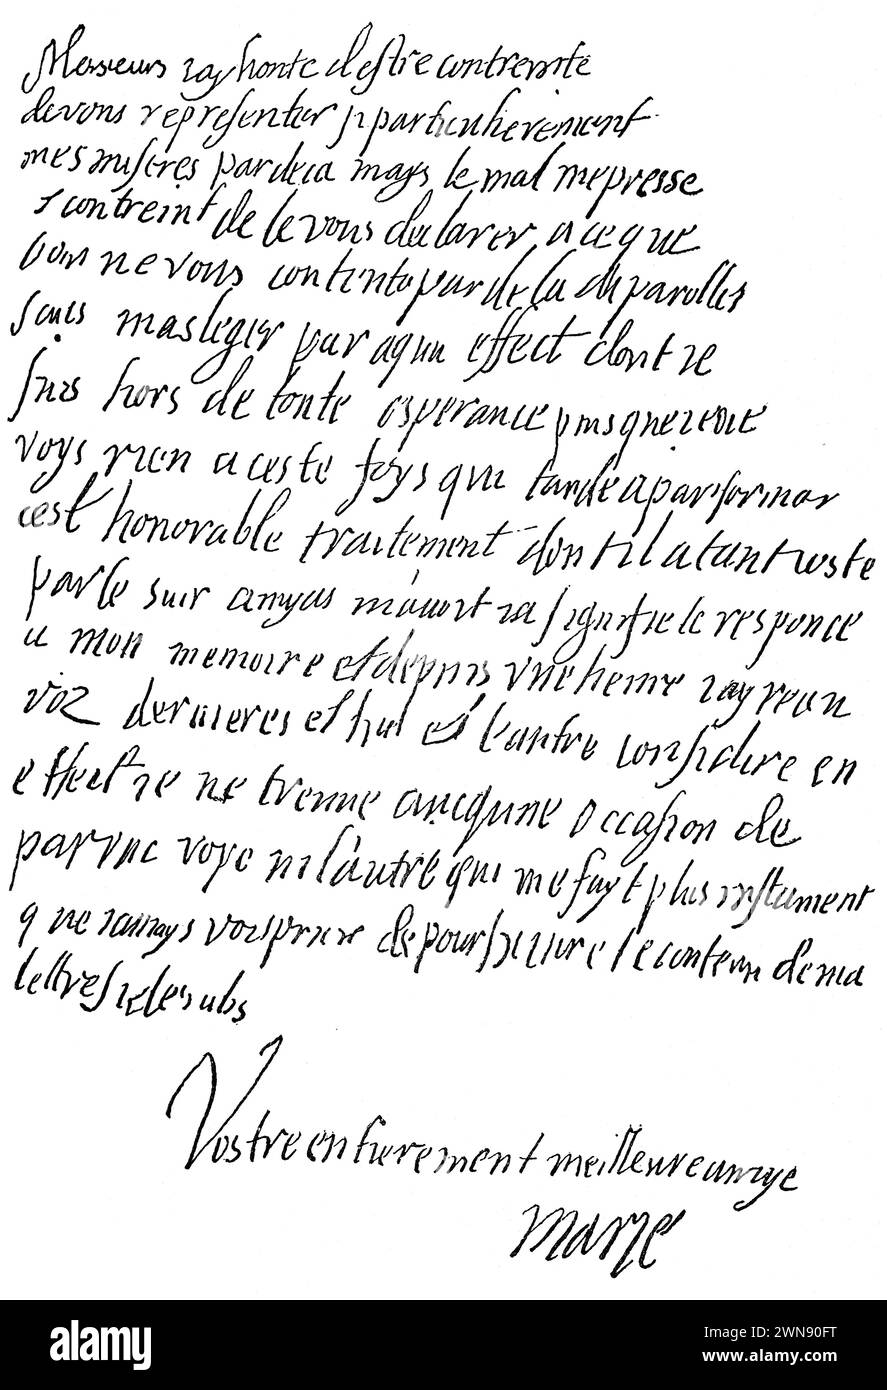 Monsieur iay honte destre contreinte
de vous representer si particulierement
mes miseres par deca mays le mal me presse
& contreint de le vous declarer a ce que
lon ne vous contente par de la de parolles
sans masleger par aqun effect dont ie
suis hors de toute esperance puis que ie ne
voys rien a ceste foys qui tande a parformer
cest honorable traitement dont il a tant reste
par le
a mon memoire et depuis une heure iay receu
voz dernieres et lun et l'autre considire en
effect ie ne treuve aucqune occasion de
voye ni l'autre qui me fayt plus instament
que iamays vous prier de poursuivre le contenu de ma
lettre
Vostre entierement meilleure amye
Marie
alamy
Image ID: 2WN90FT
www.alamy.com